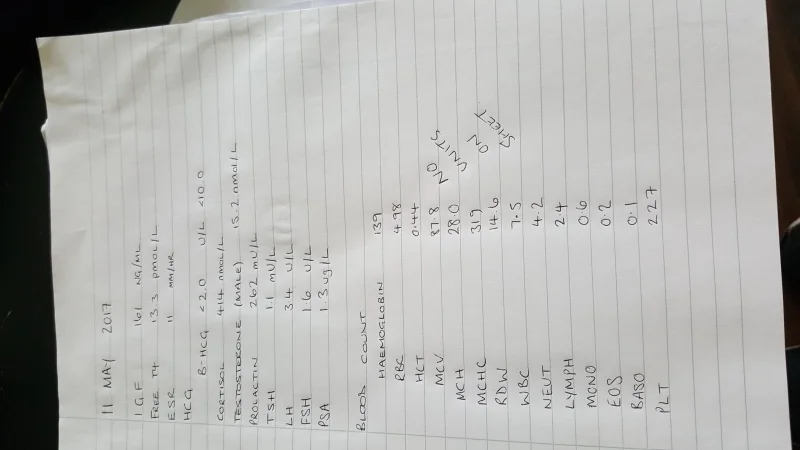 11 MAY 2017
IGF 161 NG/ML
FREE T4 13.3 pmol/L
ESR 11 MM/HR
HCG
B-HCG <2.0 U/L <10.0
CORTISOL 414 nmol/L
TESTOSTERONE (MALE) 15.2 nmol/L
PROLACTIN 262 mU/L
TSH 1.1 mU/L
LH 3.4 U/L
FSH 1.6 U/L
PSA 1.3 ug/L
BLOOD COUNT
HAEMOGLOBIN 139
RBC 4.98
HCT 0.44
MCV 87.8
MCH 28.0
MCHC 319
RDW 14.6
WBC 7.5
NEUT 4.2
LYMPH 2.4
MONO 0.6
EOS 0.2
BASO 0.1
PLT 227
NO
UNITS
ON
SHEET